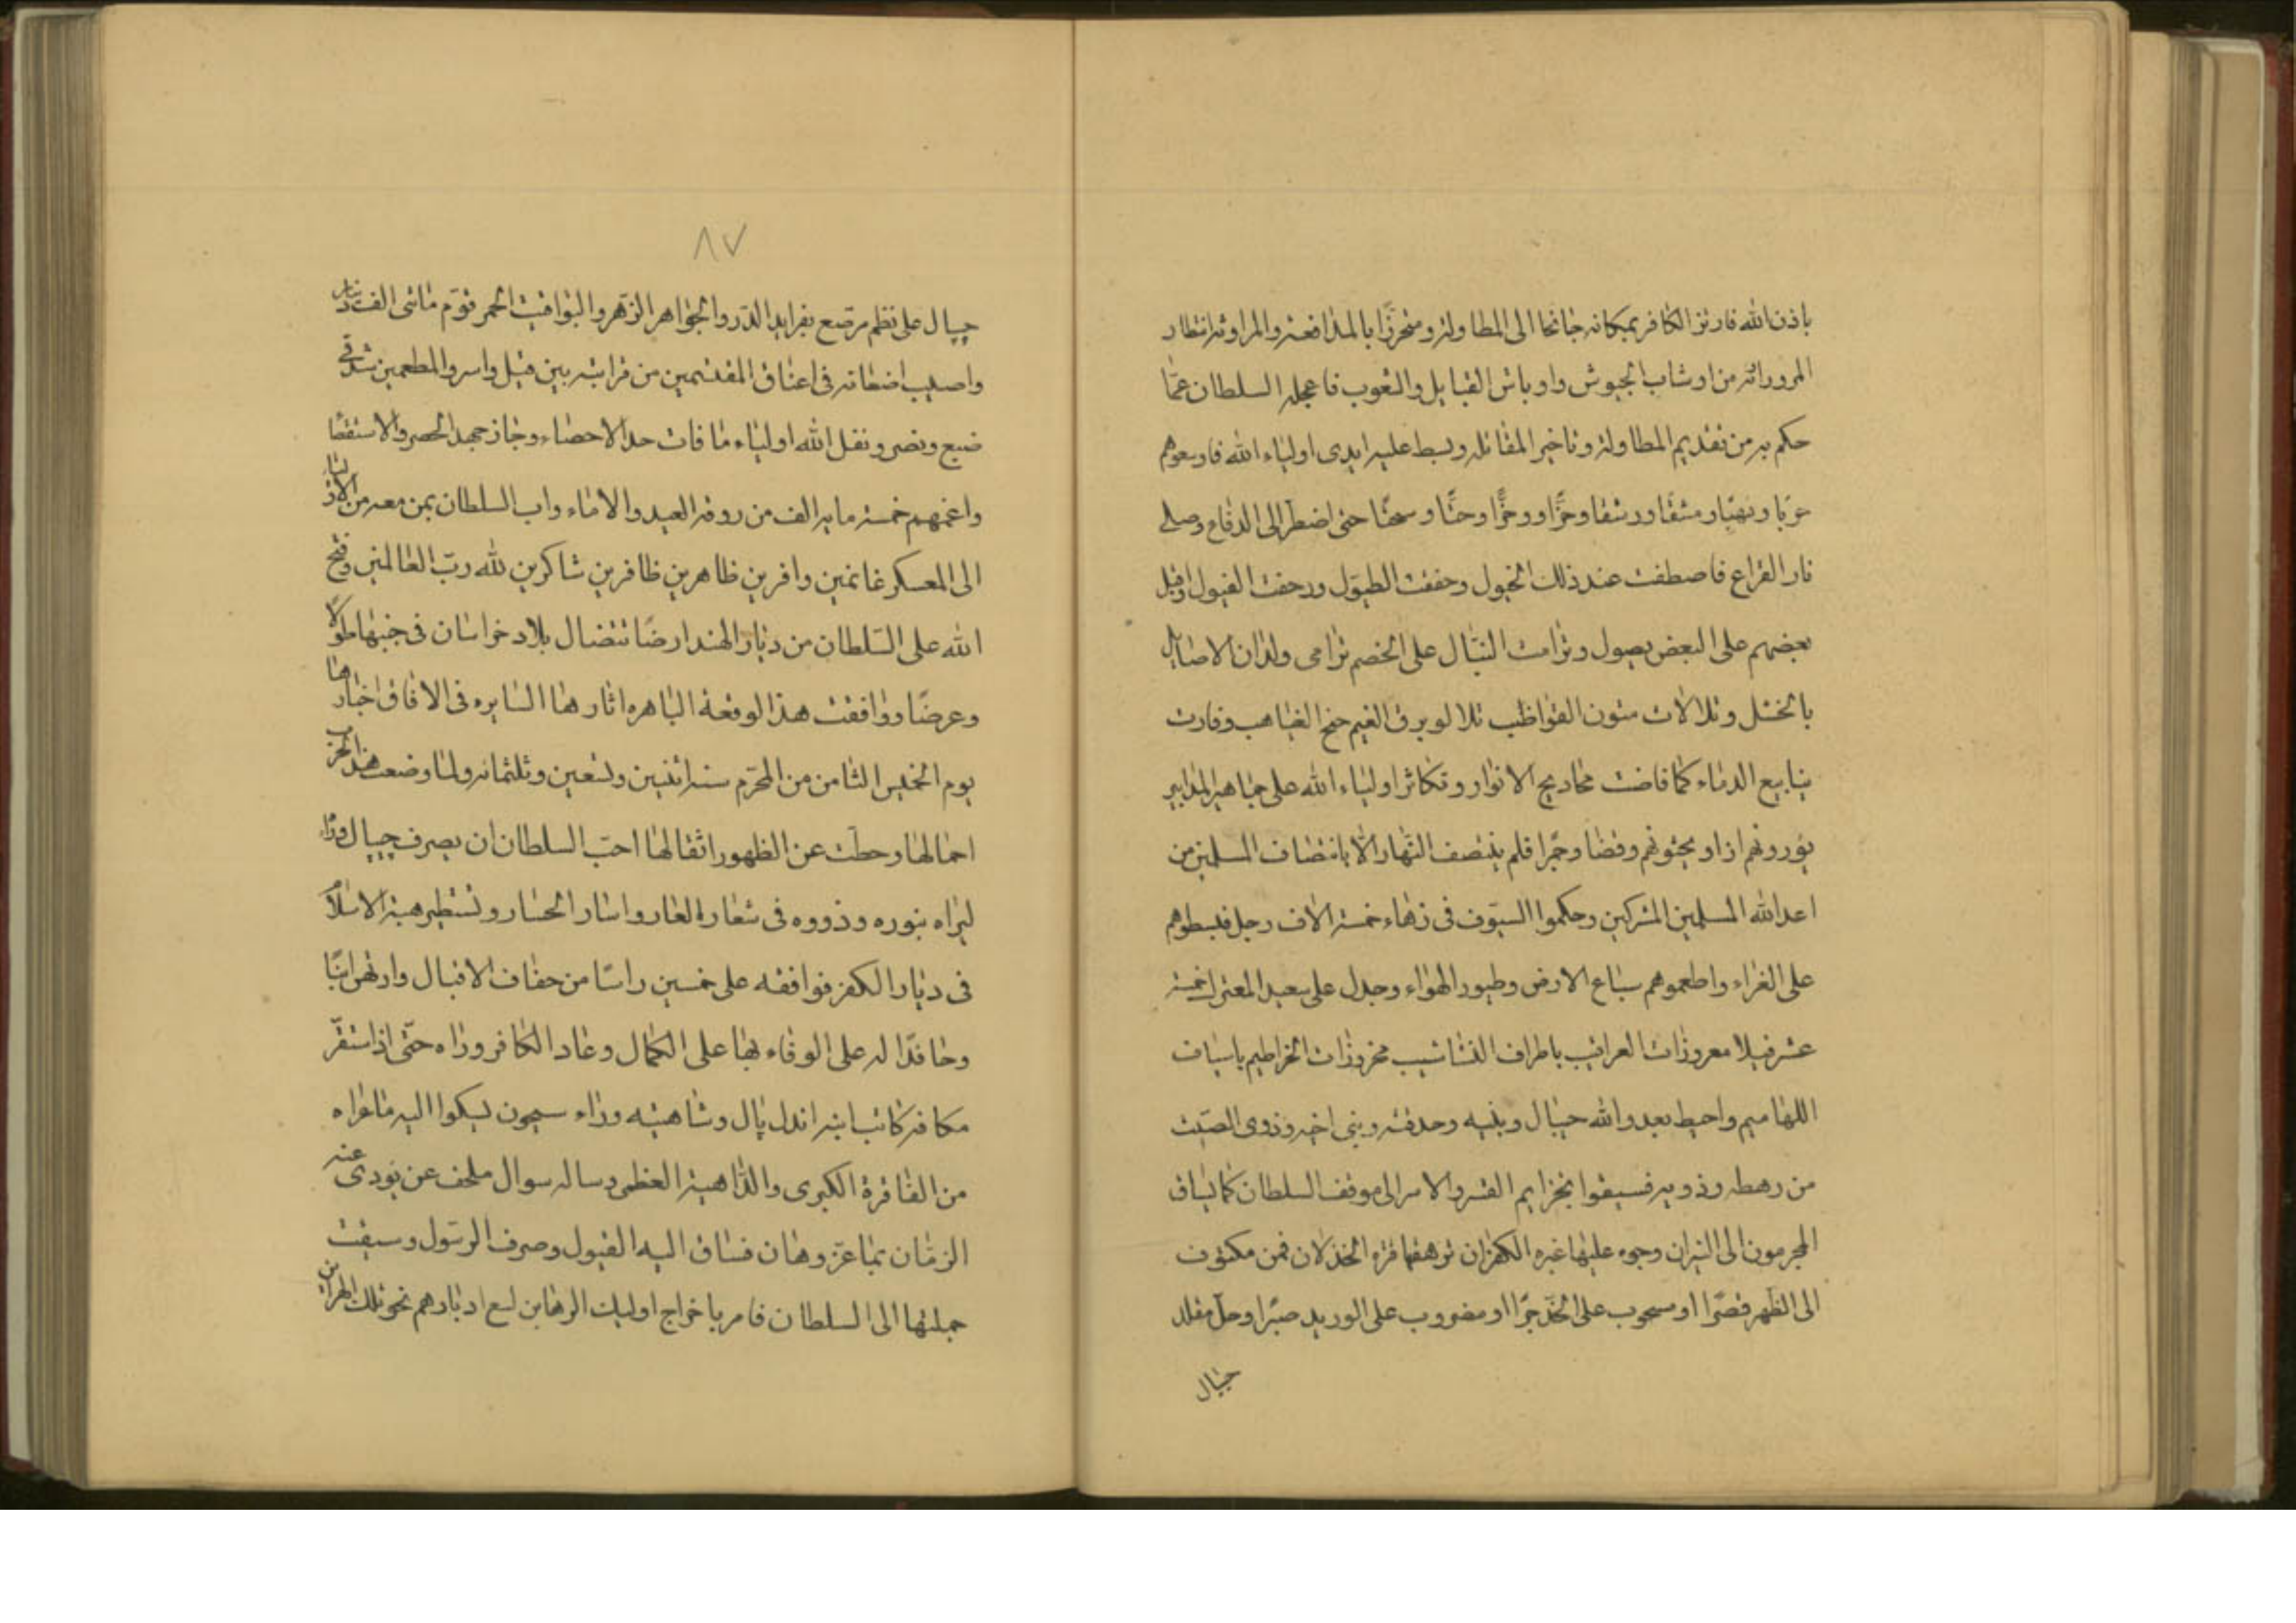 باذن الله فارتز الكافر بمكانه جانحا الى المطاولة ومتحرزا بالمدافعة والمراوثه انتظار
المرورائه من اوشاب الجيوش واوباش القبايل والشعوب فاعجله السلطان عمّا
حكم به من تقديم المطاولة وتاخير المقاتله وبسط عليه ايدى اولياء الله فاوسعوهم
ونهبًا ومشقًا ورشقا وحزًّا ووخزًّا وحتًّا وسحتًا حتى اضطر الى الدفاع وصلى
نار القراع فاصطفت عند ذلك الخيول وخفقت الطبول وزحفت الفيول واقبل
بعضهم على البعض يصول وترامت النبّال على الخصم ترامى ولدان الاصايل
بالخشل وتلالات متون القواظب تلالو بروق الغيم جنح الغياهب وفارت
ينابيع الدماء كما فاضت مجاديح الانوار وتكاثر اولياء الله على جماهير المدابير
وحمّرا فلم ينتصف النّهار الّا بانتصاف المسلمين من
اعداء الله المسلمين المشركين وحكموا السيوف فى زهاء خمسة الاف رجل فبسطوهم
على الغراء واطعموهم سباع الارض وطيور الهواء وجدل على صعيد المعترك خمسة
عشر فيلا معروزات العراقيب باطراف النشاشيب محزوزات الخراطيم باسياف
اللهاميم واحيط بعدو الله جيبال وبنيه وحدفته وبنى اخيه وذوى الصّيت
من رهطه وذويه فسيقوا بخزايم القسر والاسر الى موقف السلطان كما يساق
المجرمون الى النيران وجوه عليها غبره الكفران ترهقها قتره الخذلان فمن مكتوف
الى الظهر قصّرا او مسحوب على الخدّ جرّا او مضروب على الوريد صبّرا وحلّ مقلد
جيبال
٨٧
جيپال على نظم مرصّع بفرايد الدّر والجواهر الزّهر واليواقيت الحمر قوّم مائتى الف دينار
واصيب اضعافه فى اعناق المقتسمين من قرابته بين قتيل واسر والمطعمين شدقى
ضبع ونصر ونفل الله اولياء ما فات حد الاحصاء وجاز جهد الحصر والاستقصا
واغنمهم خمسة مايه الف من روقة العبيد والاماء واب السلطان بمن معه من الاولياء
الى المعسكر غانمين وافرين ظاهرين ظافرين شاكرين لله ربّ العالمين وفتح
الله على السّلطان من ديار الهند ارضًا تتضال بلاد خراسان فى جنبها طولًا
وعرضًا ووافقت هذا الوقعة الباهره اثارها السايره فى الافاق اخبارها
يوم الخميس الثامن من المحرّم سنه اثنين وتسعين وثلثمائه ولما وضعت هذا الحرب
احمالها وحطّت عن الظهور اثقالها احبّ السلطان ان يصرف جيپال وراء
ليراه بنوره وذووه فى شعار العار واسار الخسار وتستطير هيبة الاسلام
فى ديار الكفر فوافقه على خمسين راسًا من خفاف الافيال وارتهن ابنًا
وحافدًا له على الوفاء بها على الكمال وعاد الكافر وراه حتّى اذا استقرّ
مكافه كاتب ابنه اندل پال وشاهيته وراء سيحون يشكوا اليه ما عراه
من الفاقرة الكبرى والدّاهية العظمى وساله سوال ملحف عن يودى عنه
الزمان بما عزّ وهان فساق اليه الفيول وصرف الرسول وسيقت
جملتها الى السلطان فامر باخراج اوليك الرهاين لسع ادبارهم نحو تلك